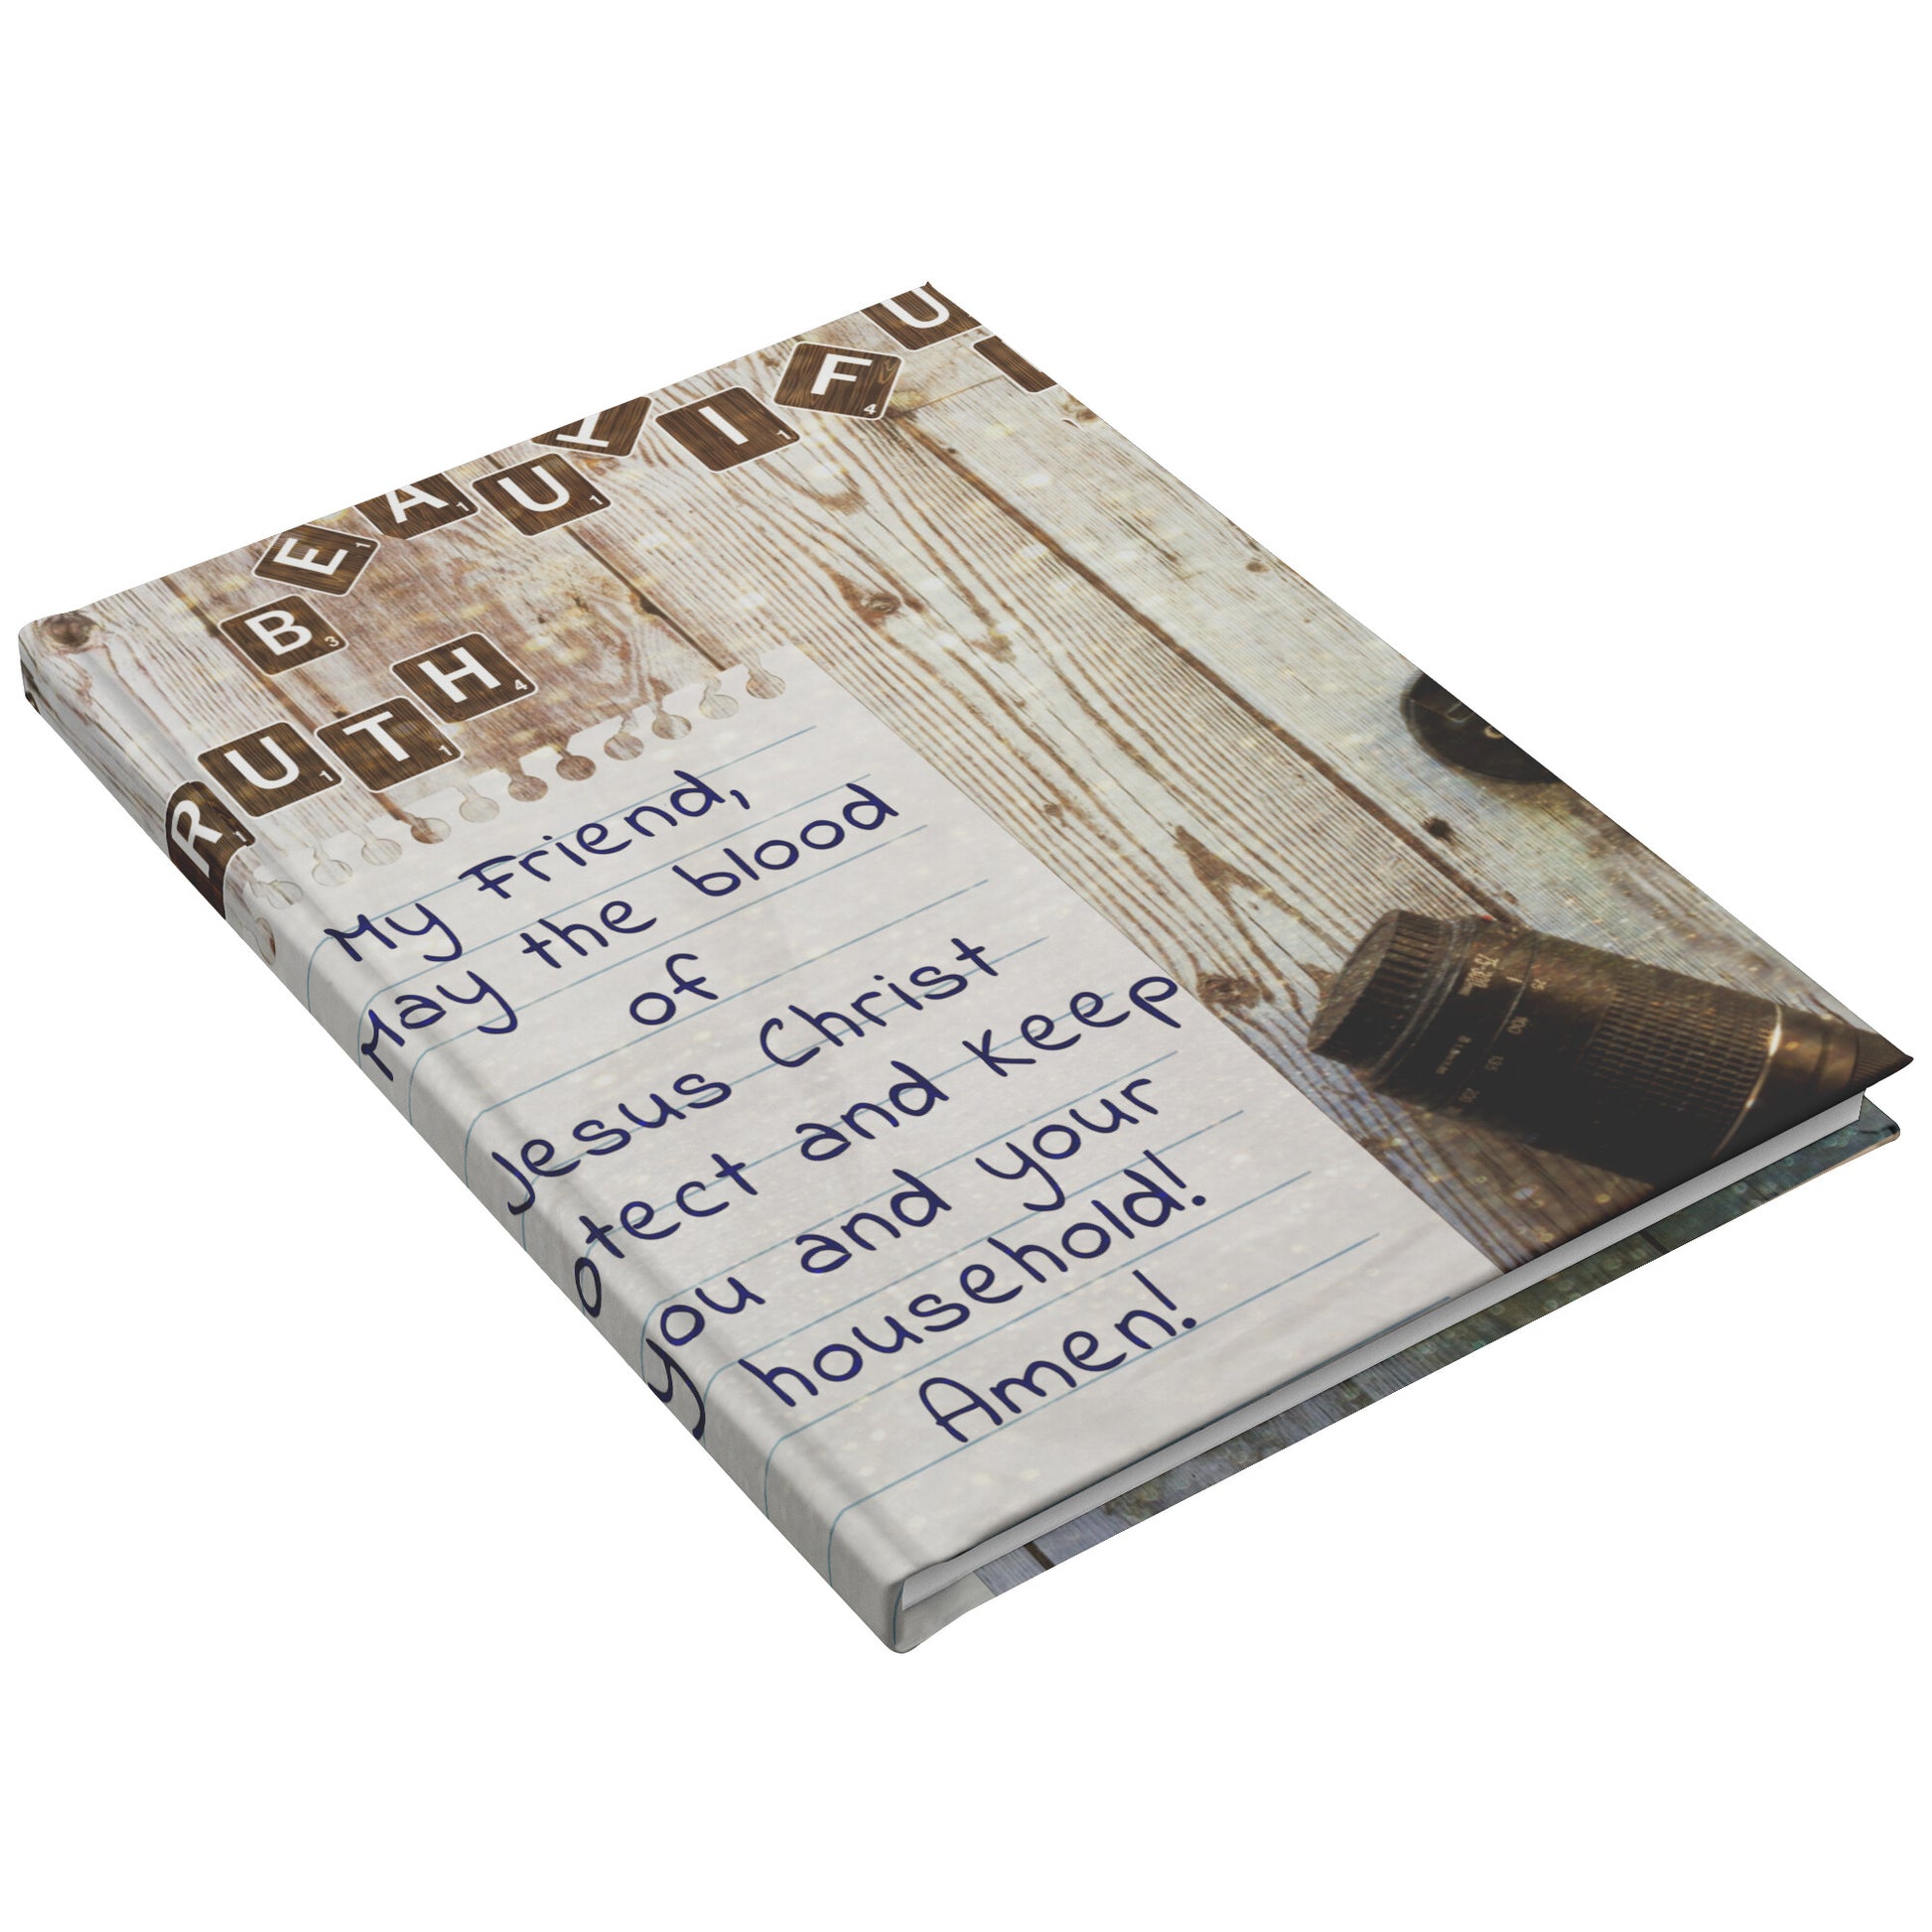 BEAUTIFU
RUTH
My Friend,
May the blood
of
Jesus Christ
otect and keep
you and your
household!
Amen!